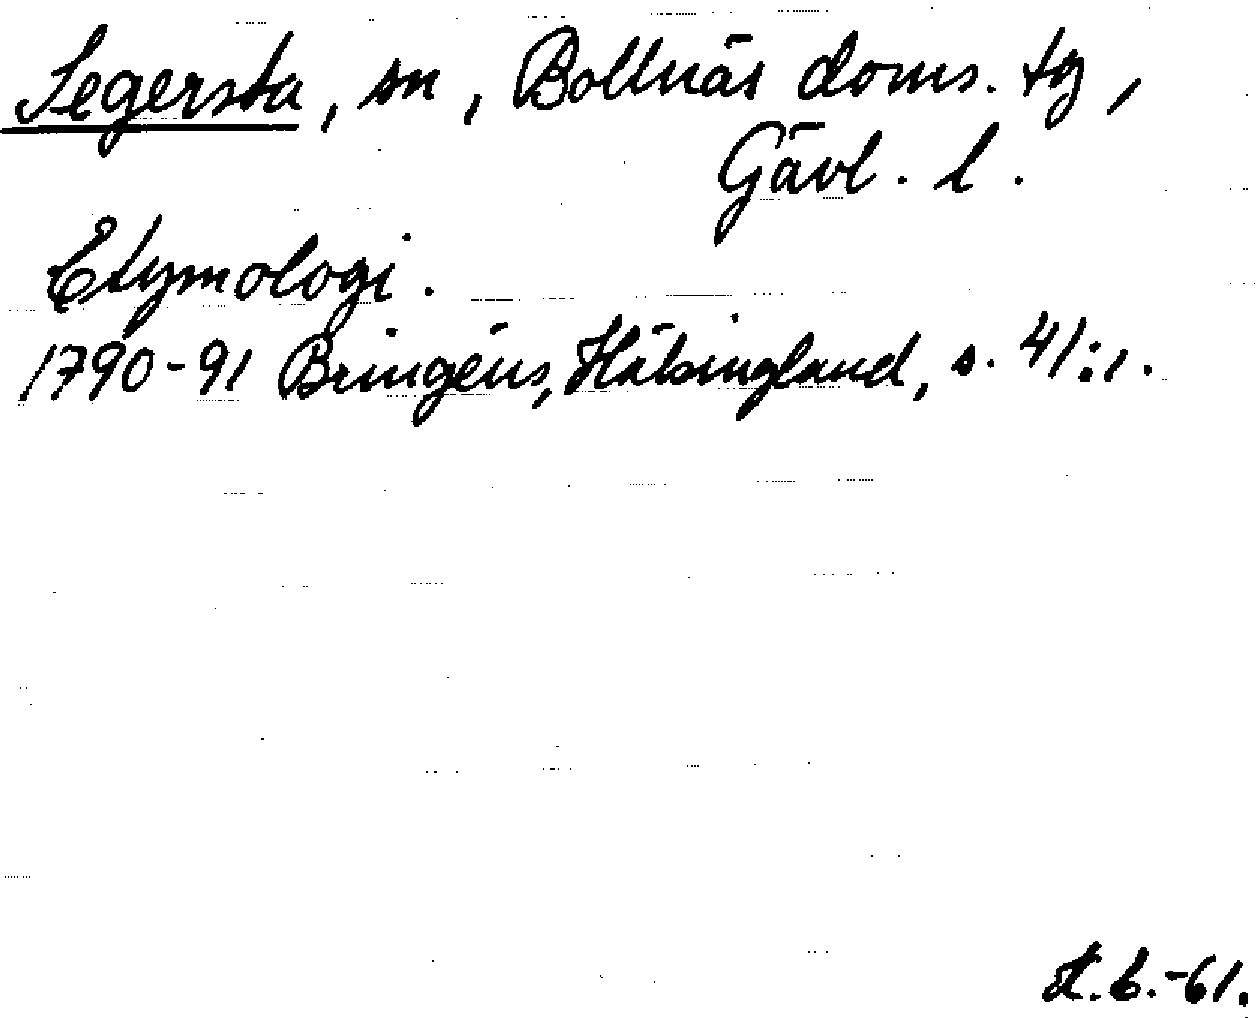 Segersta, sn, Bollnäs doms. tg,
Gävl. l.
Etymologi.
1790-91 Bringéus, Hälsingland, s. 41:1.
H.b.-61.